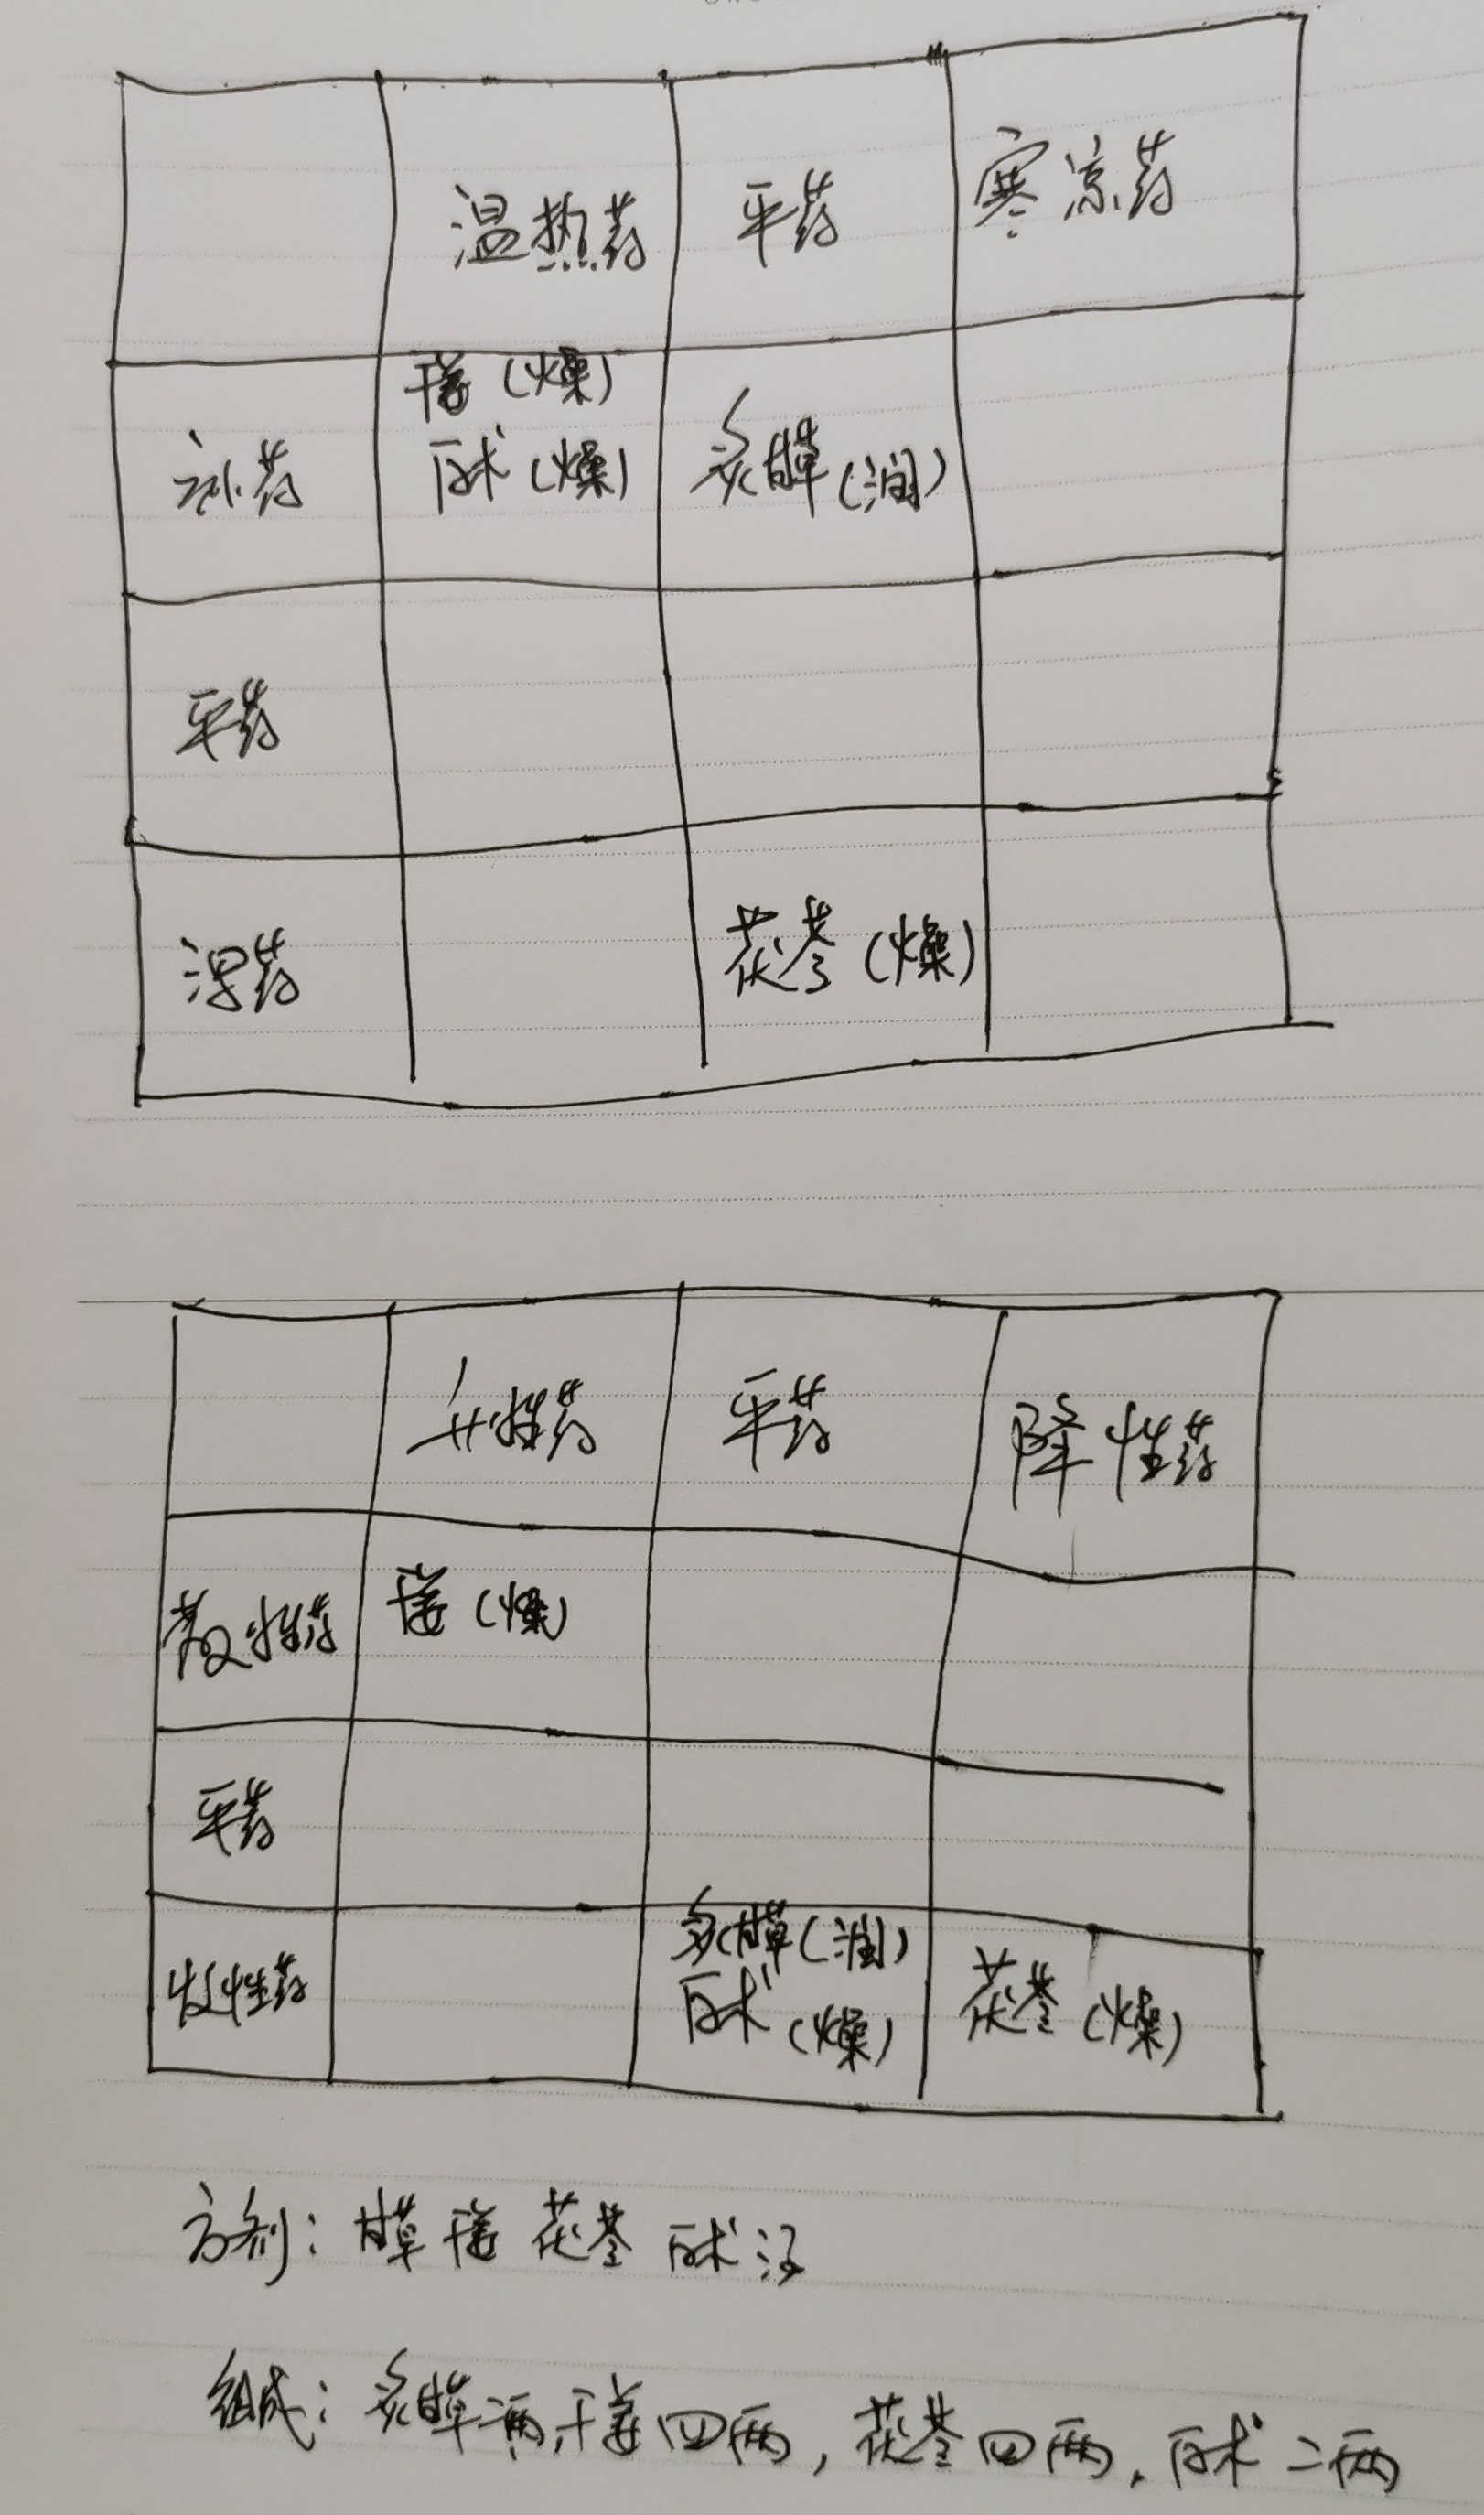 温热药 平药 寒凉药
干姜（燥）
补药 白术（燥） 炙甘草（润）
平药
泻药 茯苓（燥）
升性药 平药 降性药
散性药 干姜（燥）
平药
炙甘草（润）
收性药 白术（燥） 茯苓（燥）
方剂：甘草干姜茯苓白术汤
组成：炙甘草二两，干姜四两，茯苓四两，白术二两